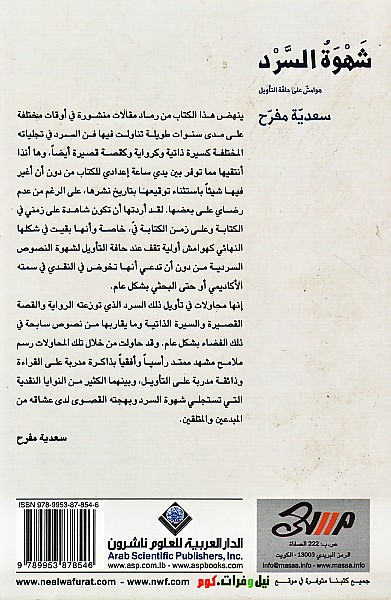 شَهْوَةُ السَّرْد
هوامش على حافة التأويل
سعديّة مفرّح
ينهض هذا الكتاب من رماد مقالات منشورة في أوقات مختلفة
على مدى سنوات طويلة تناولت فيها فن السرد في تجلياته
المختلفة كسيرة ذاتية وكرواية وكقصة قصيرة أيضاً، وها أنذا
أنتقيها مما توفر بين يدي ساعة إعدادي للكتاب من دون أن أغير
فيها شيئاً باستثناء توقيعها بتاريخ نشرها، على الرغم من عدم
رضاي على بعضها. لقد أردتها أن تكون شاهدة على زمني في
الكتابة وعلى زمن الكتابة فيّ، خاصة وأنها بقيت في شكلها
النهائي كهوامش أولية تقف عند حافة التأويل لشهوة النصوص
السردية من دون أن تدعي أنها تخوض في النقدي في سمته
الأكاديمي أو حتى البحثي بشكل عام.
إنها محاولات في تأويل ذلك السرد الذي توزعته الرواية والقصة
القصيرة والسيرة الذاتية وما يقاربها من نصوص سابحة في
ذلك الفضاء بشكل عام. وقد حاولت من خلال تلك المحاولات رسم
ملامح مشهد ممتد رأسياً وأفقياً بذاكرة مدربة على القراءة
وذائقة مدربة على التأويل، وبينهما الكثير من النوايا النقدية
التي تستجلي شهوة السرد وبهجته القصوى لدى عشاقه من
المبدعين والمتلقين.
سعدية مفرح
ISBN 978-9953-87-854-6
9 789953 878546
الدار العربية للعلوم ناشرون
Arab Scientific Publishers, Inc.
www.asp.com.lb - www.aspbooks.com
مسعى
ص.ب: 222 الصفاة
الرمز البريدي 13003 - الكويت
info@masaa.info - www.masaa.info
جميع كتبنا متوفرة في موقع نيل وفرات.كوم
www.neelwafurat.com - www.nwf.com